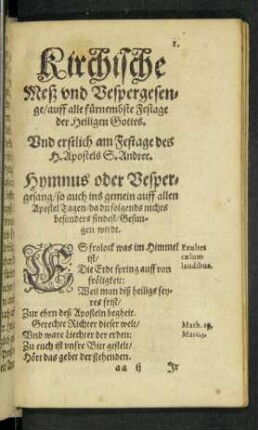 1.
Kirchische
Meß vnd Vespergesen-
ge/auff alle fürnembste Festage
der Heiligen Gottes.
Vnd erstlich am Festage des
H. Apostels S. Andree.
Hymnus oder Vesper-
gesang/so auch ins gemein auff allen
Apostel Tagen/da du folgends nichts
besonders findest/Gesun-
gen wirdt.
ES frolock was im Himmel
ist/
Exultet
cœlum
laudibus.
Die Erde spring auff von
fröligkeit:
Weil man diß heiligs fey-
res frist/
Zur ehrn deß Aposteln begheit.
Gerechte Richter dieser welt/
Math. 19.
Vnd ware Liechter der erden:
Marc.
Zu euch ist vnsre Bitt gestelt/
Hört das gebet der flehenden.
aa ij
Ir